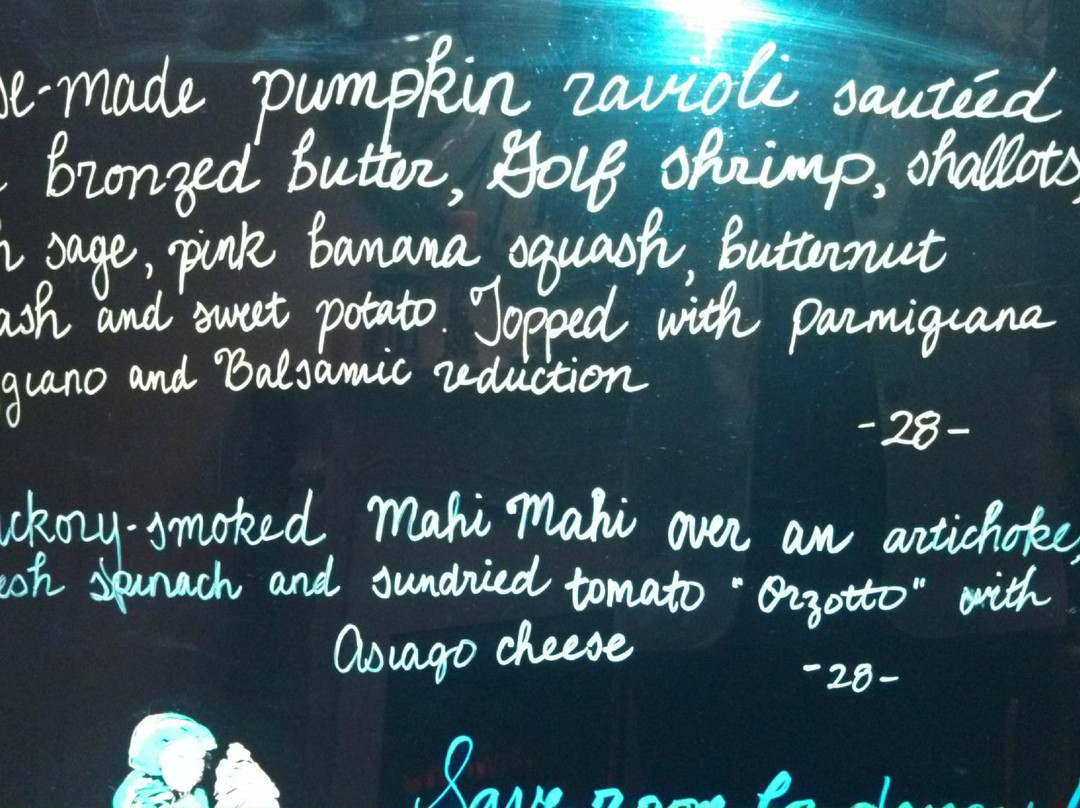 se-made pumpkin ravioli sautéed
bronzed butter, Golf shrimp, shallots,
h sage, pink banana squash, butternut
ash and sweet potato. Topped with parmigiana
giano and Balsamic reduction
-28-
ickory-smoked Mahi Mahi over an artichoke,
esh spinach and sundried tomato "Orzotto" with
Asiago cheese
-28-
Save room